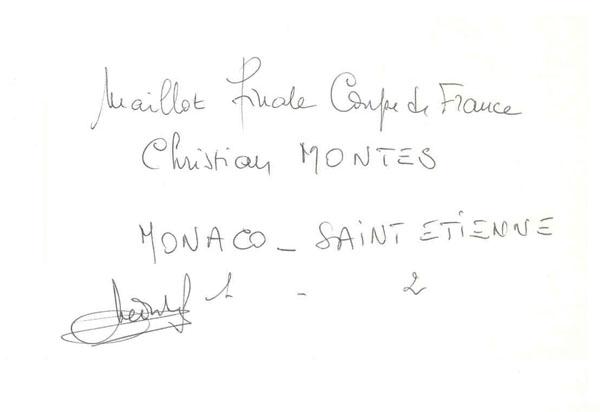 Maillot finale Coupe de France
Christian MONTES
MONACO - SAINT ETIENNE
1 - 2